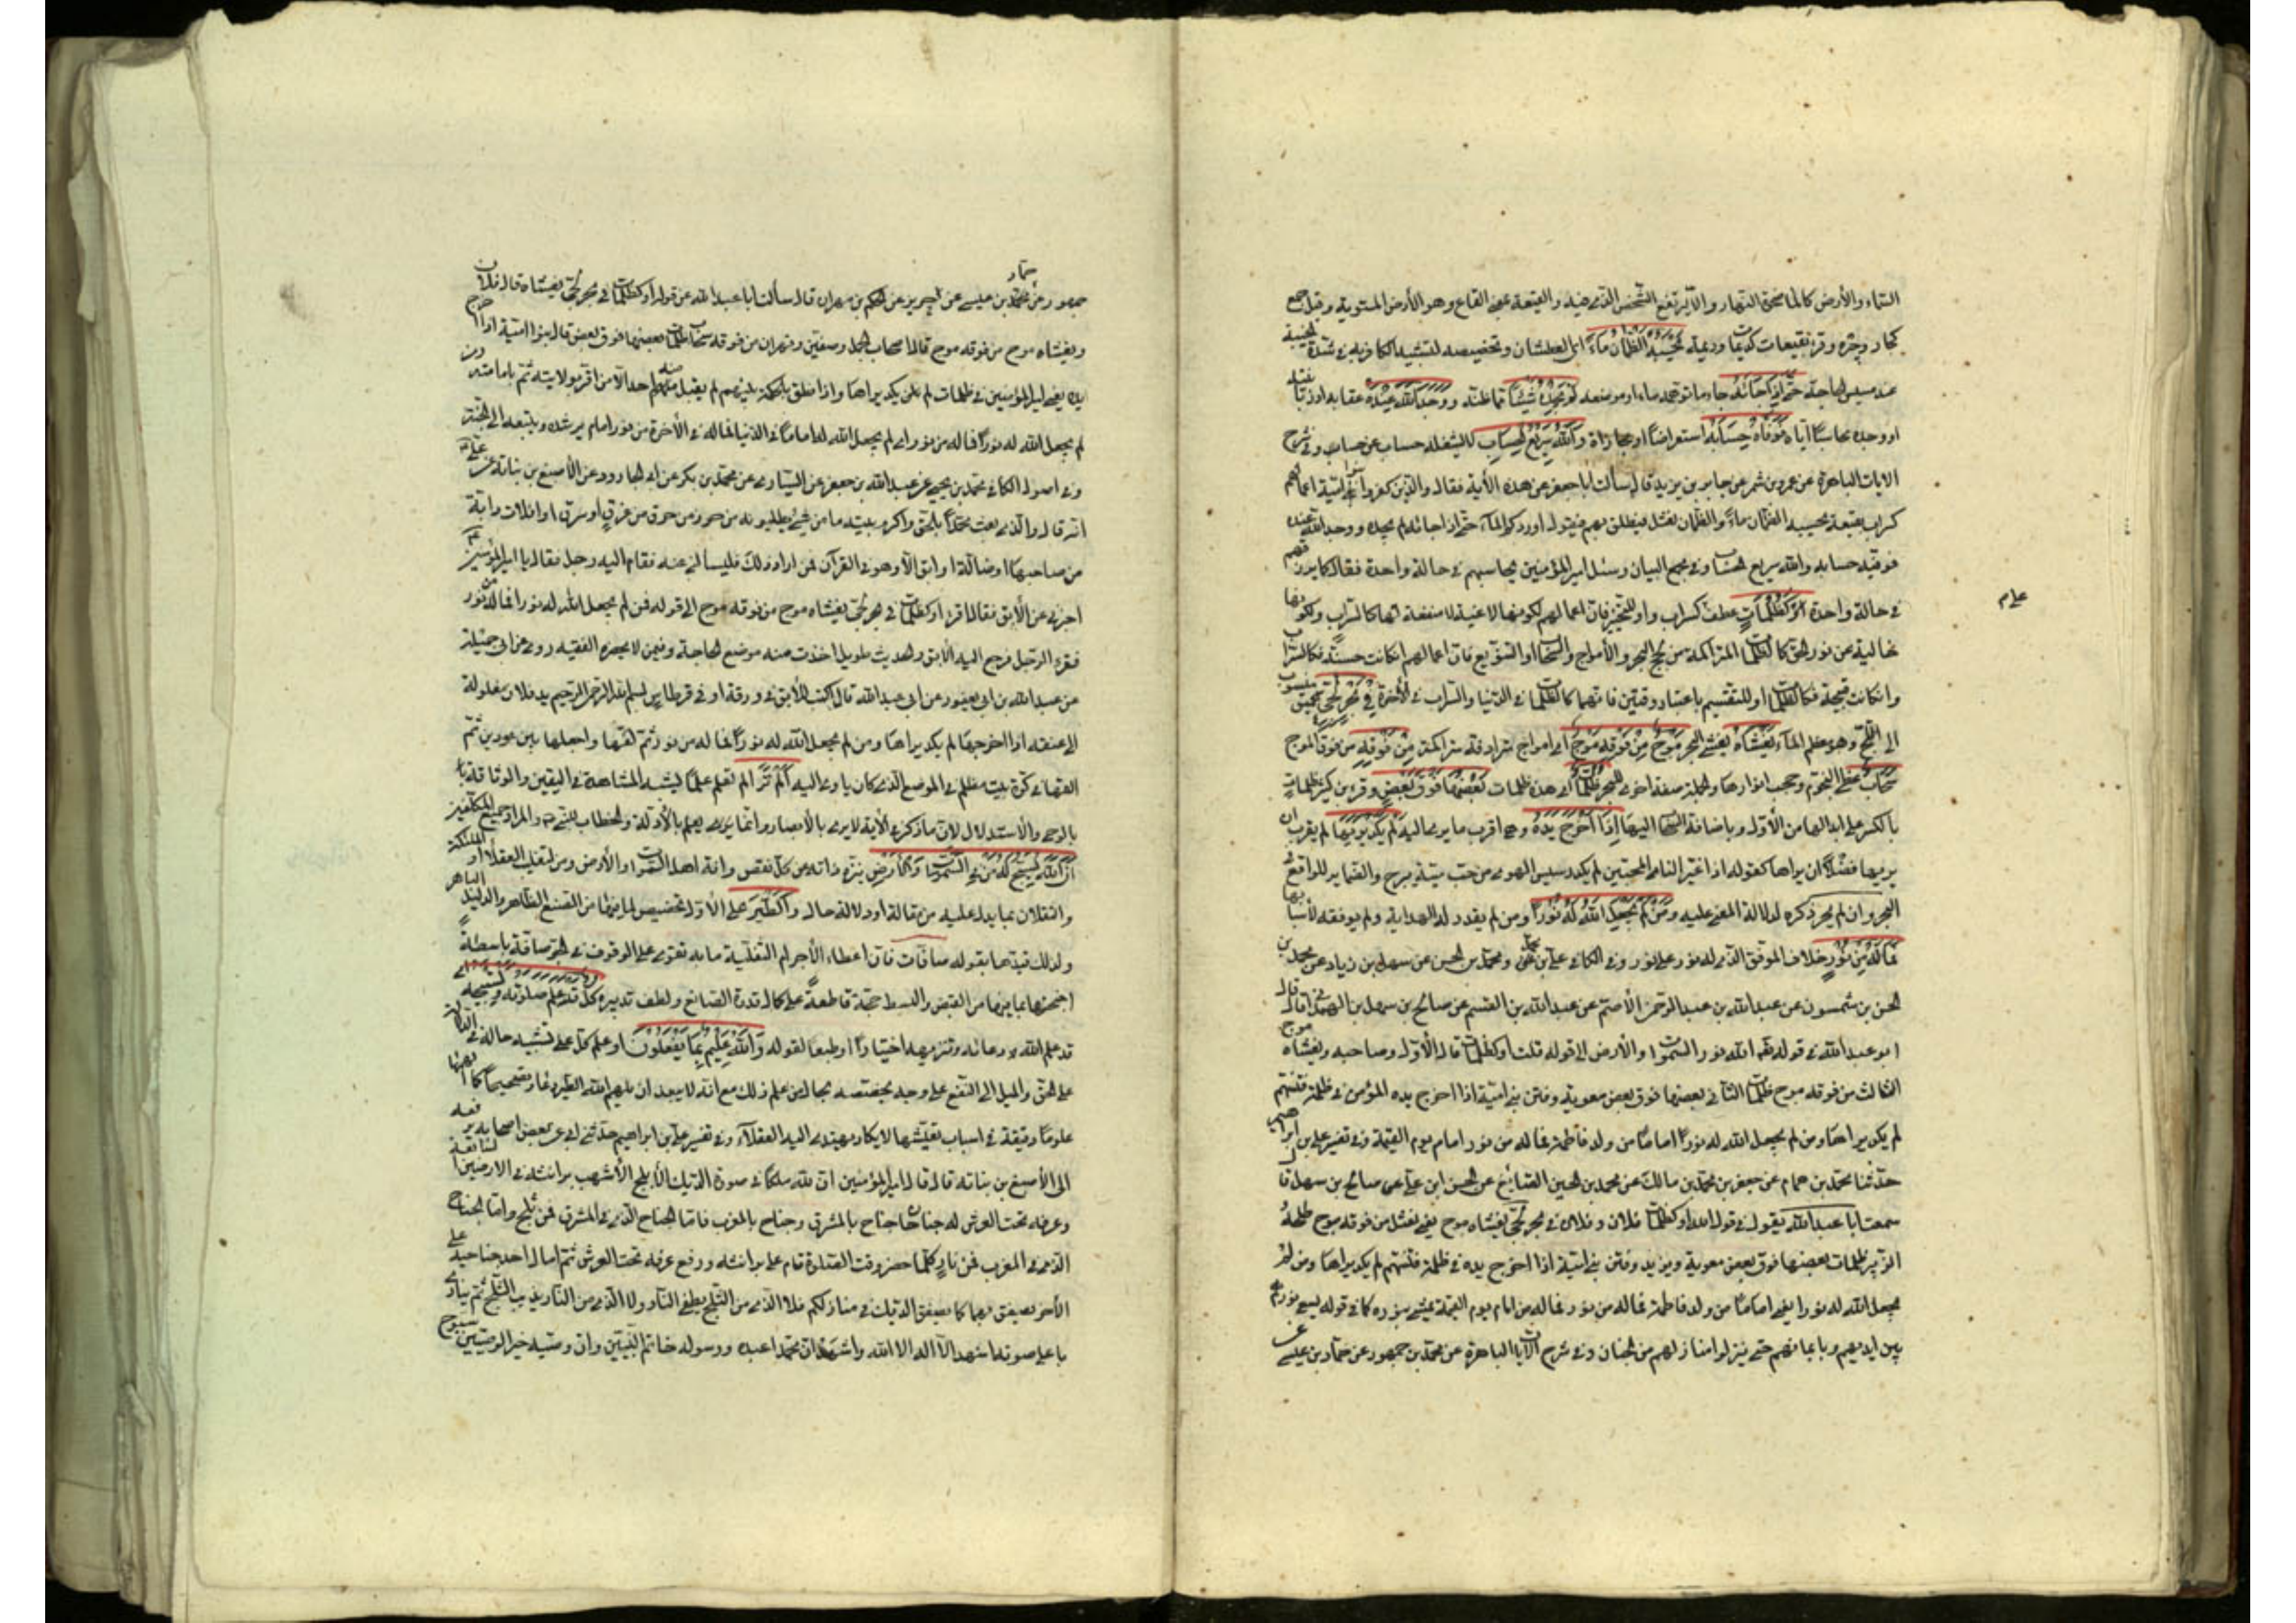 السّماء والأرض كالماء ضحى النهار والآل يرفع الشّخص الّذي فيه والقيعة بمعنى القاع وهو الأرض المستوية وقيل جمع
كجار وجيرة وقرئ بقيعات كديمات وديمة يَحْسَبُهُ الظَّمْآنُ مَاءً اى العطشان وتخصيصه لتشبيه الكافر به فى شدّة الخيبة
عند مسيس الحاجة حَتّى إِذَا جَاءَهُ جاء ما توهّمه ماء او موضعه لَمْ يَجِدْهُ شَيْئًا ممّا ظنّه وَوَجَدَ اللّهَ عِنْدَهُ عقابه او زبانيته
او وجده محاسبًا ايّاه فَوَفّاهُ حِسَابَهُ استعراضًا او مجازاة وَاللّهُ سَرِيعُ الْحِسَابِ لا يشغله حساب عن حساب وفى شرح
الايات الباهرة عن عمرو بن شمر عن جابر بن يزيد قال سألت ابا جعفر عن هذه الأية فقال والّذين كفروا بنو اميّة اعمالهم
كسراب بقيعة يحسبه الظمآن ماءً والظمآن نعثل فينطلق بهم فيقول اوردكم الماء حتّى اذا جاءه لم يجده ووجد اللّه عنده
فوفيه حسابه واللّه سريع الحساب وفى مجمع البيان وسئل امير المؤمنين كيف يحاسبهم فى حالة واحدة فقال كما يرزقهم
علم
فى حالة واحدة أَوْ كَظُلُمَاتٍ عطف كسراب واو للتخيير فان اعمالهم لكونها لاغية لا منفعة لها كالسّراب ولكونها
خالية عن نور الحقّ كالظلمات المتراكمة من لجّ البحر والأمواج والسّحاب او التنويع فان اعمالهم انكانت حسنة فكالسّراب
وانكانت قبيحة فكالظلمات او للتقسيم باعتبار وقتين فانّها كالظلمات فى الدّنيا والسّراب فى الأخرة فِي بَحْرٍ لُجِّيٍّ عميق منسوب
الى اللّجّ وهو معظم الماء يَغْشَاهُ يغشى البحر مَوْجٌ مِنْ فَوْقِهِ مَوْجٌ اى امواج مترادفة متراكمة مِنْ فَوْقِهِ من فوق الموج
سَحَابٌ غطّى النّجوم وحجب انوارها والجملة صفة اخرى للبحر ظُلُمَاتٌ اى هذه ظلمات بَعْضُهَا فَوْقَ بَعْضٍ وقرء ابن كثير ظلماتٍ
بالكسر على ابدالها من الأولى وباضافة السّحاب اليها إِذَا أَخْرَجَ يَدَهُ وهى اقرب ما يرى اليه لَمْ يَكَدْ يَرَاهَا لم يقرب ان
يريها فضلًا ان يراها كقوله اذا غيّر النأى المحبّين لم يكد رسيس الهوى من حبّ ميّة يبرح والضّماير للواقع فى
البحر وان لم يجر ذكره لدلالة المعنى عليه وَمَنْ لَمْ يَجْعَلِ اللّهُ لَهُ نُورًا ومن لم يقدر له الهداية ولم يوفقه لأسبابها
فَمَا لَهُ مِنْ نُورٍ خلاف الموفق الّذى له نور على نور وفى الكافى علىّ بن محمّد ومحمّد بن الحسن عن سهل بن زياد عن محمد بن
الحسن بن شمّون عن عبد اللّه بن عبد الرّحمن الأصمّ عن عبد اللّه بن القسم عن صالح بن سهل الهمدانى قال قال
ابو عبد اللّه فى قوله تعالى اللّه نور السّموات والأرض الى قوله قلت او كظلمات قال الأوّل وصاحبه يغشاه موج
الثالث من فوقه موج ظلمات الثانى بعضها فوق بعض معوية وفتن بنى اميّة اذا اخرج يده المؤمن فى ظلمة فتنتهم
لم يكد يراها ومن لم يجعل اللّه له نورًا امامًا من ولد فاطمة فما له من نور امام يوم القيمة وفى تفسير علىّ بن ابراهيم
حدّثنا محمّد بن همام عن جعفر بن محمّد بن مالك عن محمد بن الحسين الصّائغ عن الحسن ابن علىّ عن صالح بن سهل قال
سمعت ابا عبد اللّه يقول فى قول اللّه او كظلمات فلان وفلان فى بحر لجّىّ يغشاه موج يعنى نعثل من فوقه موج طلحة
الزّبير ظلمات بعضها فوق بعض معوية ويزيد وفتن بنى اميّة اذا اخرج يده فى ظلمة فتنتهم لم يكد يراها ومن لم
يجعل اللّه له نورا يعنى امامًا من ولد فاطمة فما له من نور فما له من امام يوم القيمة يمشى بنوره كما فى قوله يسعى نورهم
بين ايديهم وبايمانهم حتّى ينزلوا منازلهم من الجنان وفى شرح الآيات الباهرة عن محمّد بن جمهور عن حمّاد بن عيسى عن
جمهور عن حمّاد بن عيسى عن حريز عن الحكم بن حمران قال سألت ابا عبد اللّه عن قوله او كظلمات فى بحر لجّىّ يغشاه قال فلان
ويغشاه موج من فوقه موج قال اصحاب الجمل وصفّين ونهروان من فوقه سحاب ظلمات بعضها فوق بعض قال بنو اميّة اذا اخرج
يده يعنى امير المؤمنين فى ظلمات لم يكد يراها واذا نطق بالحكمة بينهم لم يقبل منه احد الّا من اقرّ بولايته ثمّ بامامته ومن
لم يجعل اللّه له نورًا فما له من نور اى لم يجعل اللّه له امامًا فى الدّنيا فما له فى الأخرة من نور امام يرشده ويتبعه الى الجنّة
وفى اصول الكافى محمّد بن يحيى عن عبد اللّه بن جعفر عن السّيّارى عن محمّد بن بكر عن ابى الجارود عن الأصبغ بن نباتة عن علىّ
انّه قال والّذى بعث محمّدًا بالحقّ واكرم بيته ما من شىء يطلبونه من حرز من حرق من غرق او سرق او افلات دابة
من صاحبها او ضالّة او ابق الّا وهو فى القرآن فمن اراد ذلك فليسألنى عنه فقام اليه رجل فقال يا امير المؤمنين
اخبرنى عن الأبق فقال اقرء او كظلمات فى بحر لجّىّ يغشاه موج من فوقه موج الى قوله فمن لم يجعل اللّه له نورا فما له من نور
فقرء الرّجل فرجع اليه الأبق والحديث طويل اخذت منه موضع الحاجة وفيمن لا يحضره الفقيه روى عن ابى جميلة
عن عبد اللّه بن ابى يعفور عن ابى عبد اللّه قال اكتب للأبق فى ورقة او فى قرطاس بسم اللّه الرّحمن الرّحيم يد فلان مغلولة
الى عنقه اذا اخرجها لم يكد يراها ومن لم يجعل اللّه له نورًا فما له من نور ثمّ لفّها واجعلها بين عودين ثمّ
القها فى كوّة بيت مظلم فى الموضع الّذى كان ياوى اليه أَلَمْ تَرَ الم تعلم علمًا يشبه المشاهدة فى اليقين والوثاقة
بالوحى والأستدلال لان ما ذكر فى الأية لا يرى بالأبصار وانّما يرى يعلم بالأدلّة والخطاب للنّبى والمراد جميع المكلّفين
أَنَّ اللّهَ يُسَبِّحُ لَهُ مَنْ فِي السَّمَوَاتِ وَالْأَرْضِ ينزّه ذاته من كلّ نقص وافة اهل السّموات والأرض ومن لتغليب العقلاء او الملئكة
والثقلان بما يدلّ عليه من مقالة او دلالة حال وَالطَّيْرُ على الأوّل تخصيص لما فيها من الصّنع الظاهر والدليل الباهر
ولذلك قيّدها بقوله صافّات فانّ اعطاء الأجرام الثقيلة ما به تقوى على الوقوف فى الجوّ صافّة باسطة
اجنحتها بما فيها من القبض والبسط حجّة قاطعة على كمال قدرة الصّانع ولطف تدبيره كُلٌّ قَدْ عَلِمَ صَلَوتَهُ وَتَسْبِيحَهُ اى
قد علم اللّه دعائه وتنزيهه اختيارًا او طبعا لقوله وَاللّهُ عَلِيمٌ بِمَا يَفْعَلُونَ او علم كلّ على تشبيه حاله فى الدلالة
على الحقّ والميل الى النّفع على وجه يخصّه بحال من علم ذلك مع انّه لا يبعد ان يلهم اللّه الطّير دعاء وتسبيحًا كما الهمها
علومًا دقيقة فى اسباب تعيّشها لا يكاد يهتدى اليه العقلاء وفى تفسير علىّ بن ابراهيم حدّثنى ابى عن بعض اصحابه يرفعه
الى الأصبغ بن نباتة قال قال امير المؤمنين انّ للّه ملكًا فى صورة الدّيك الأبلج الأشهب براثنه فى الارضين السّابعة
وعرفه تحت العرش له جناحان جناح بالمشرق وجناح بالمغرب فامّا الجناح الّذى فى المشرق فمن ثلج وامّا الجناح
الّذى فى المغرب فمن نار كلّما حضر وقت الصّلوة قام على براثنه ورفع عرفه تحت العرش ثمّ امال احد جناحيه على
الأخر يصفق بهما كما يصفق الديك فى منازلكم فلا الّذى من الثّلج يطفى النّار ولا الّذى من النّار يذيب الثّلج ثمّ ينادى
باعلى صوته اشهد الّا اله الا اللّه واشهد انّ محمّدا عبده ورسوله خاتم النّبيّين وان وصيّه خير الوصيّين سبّوح